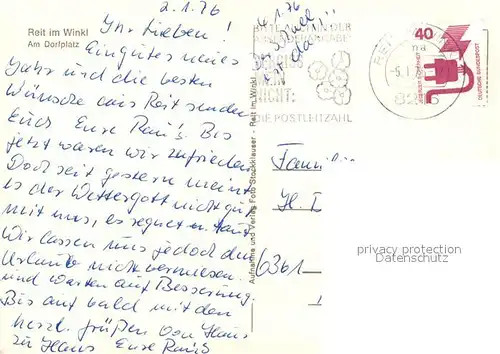 2.1.76
Reit im Winkl
Am Dorfplatz
Ihr Lieben!
Ein gutes neues
Jahr und die besten
Wünsche aus Reit senden
Euch Eure Ran's. Bis
jetzt waren wir zufrieden
Doch seit gestern meint
es der Wettergott nicht gut
mit uns, es regnet
Wir lassen uns jedoch den
Urlaub nicht vermiesen
und warten auf Besserung.
Bis auf bald mit den
herzl. Grüßen von Haus
zu Haus Eure Ran's
Aufnahme und Verlag Foto Stockklauser - Reit im Winkl
4.1.76
DIE POSTLEITZAHL
-5.1.
40
JEDERZEIT SICHERHEIT
DEUTSCHE BUNDESPOST
Fam
H.
6361
privacy protection
Datenschutz